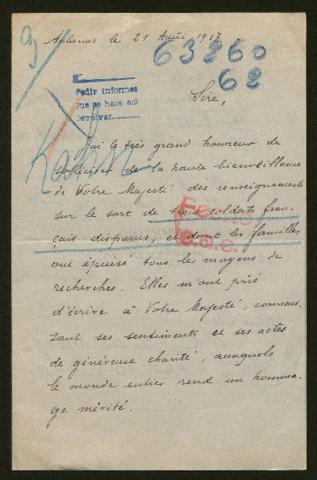 9)
Aubenas le 21 Août 1917
63260
62
Pedir informes
que se hace así
Devolver
Sire,
J'ai le très grand honneur de
solliciter de la haute bienveillance
de Votre Majesté des renseignements
sur le sort de trois soldats fran-
çais disparus, et dont les familles
ont épuisé tous les moyens de
recherches. Elles m'ont prié
d'écrire à Votre Majesté, connais-
sant ses sentiments et ses actes
de généreuse charité, auxquels
le monde entier rend un homma-
ge mérité.